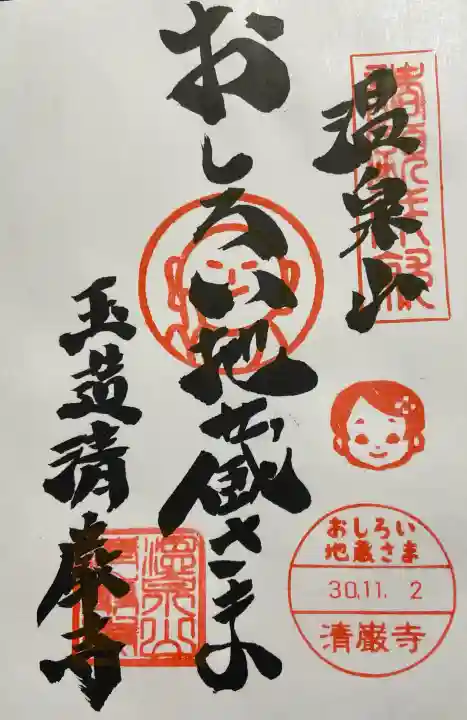 温泉山
おしろい地蔵さま
玉造清巌寺
おしろい
地蔵さま
30.11. 2
清巌寺